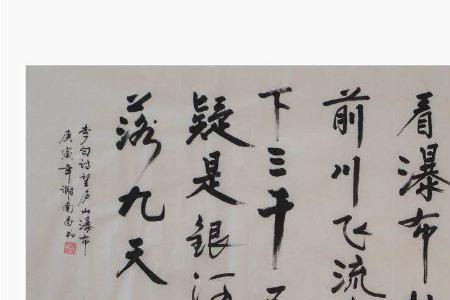 看瀑布
前川飞流
下三千
疑是銀河
落九天
李白诗望庐山瀑布
庚寅年